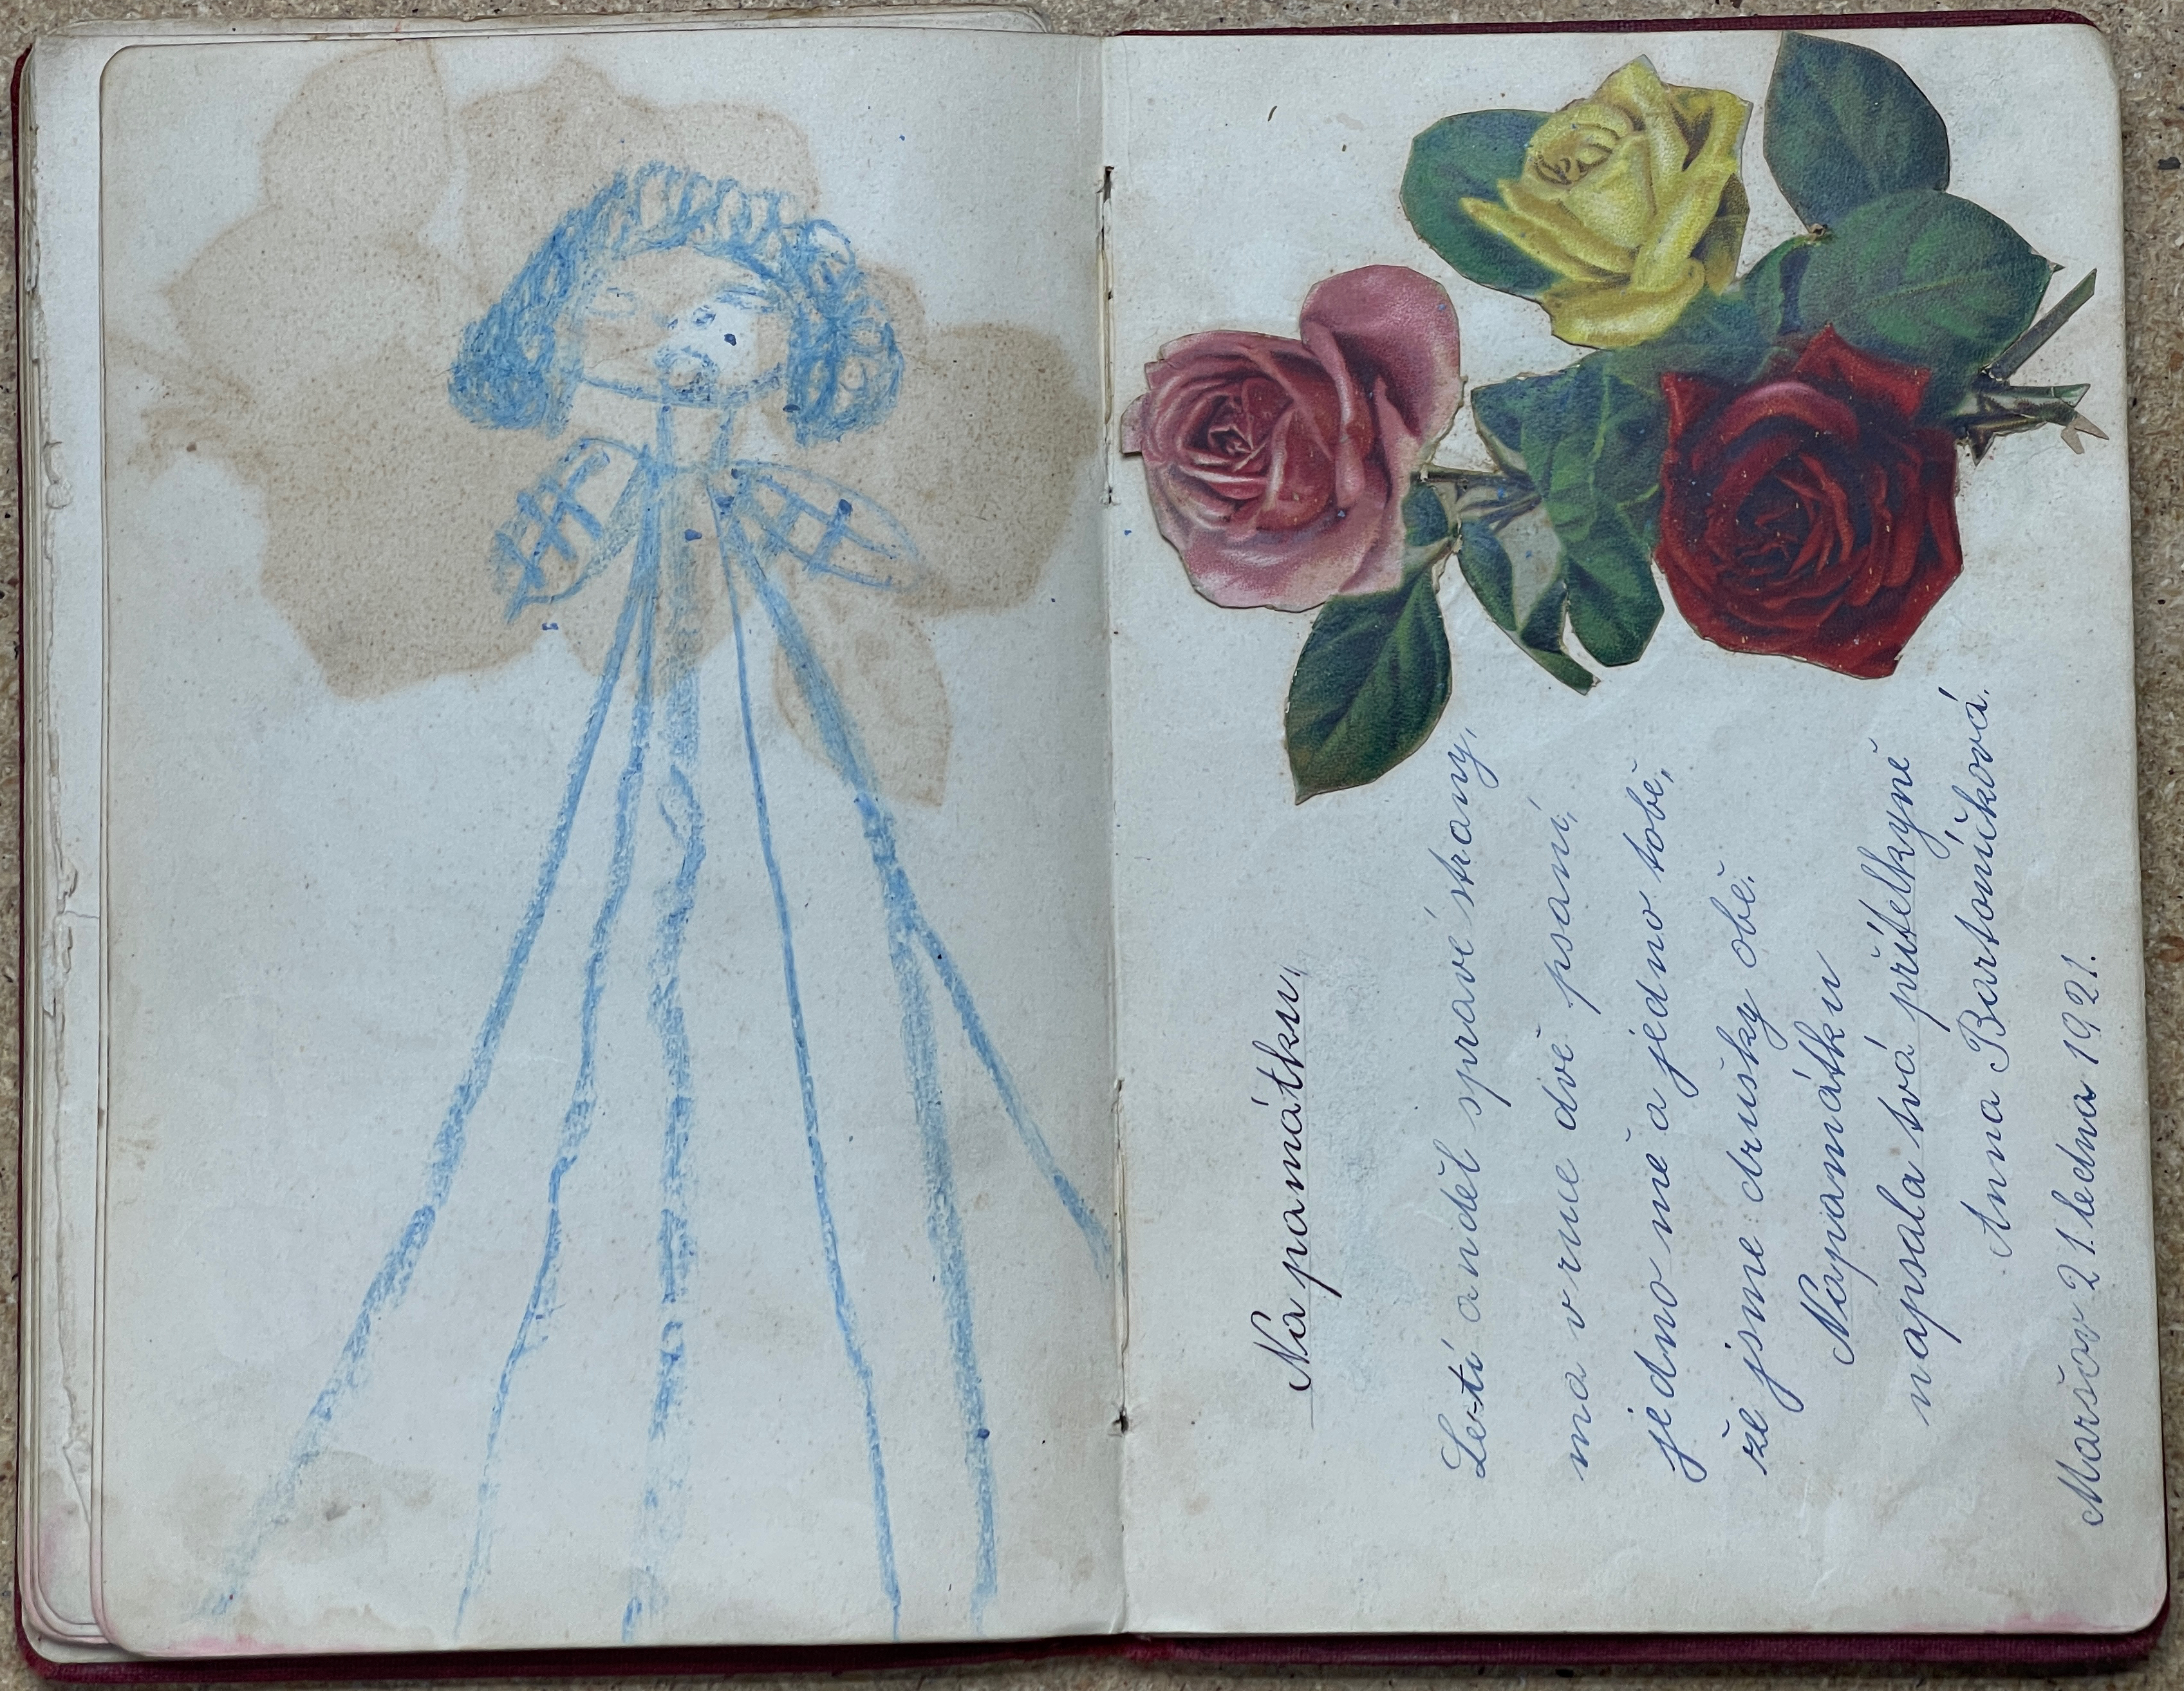 Na památku.
Letí anděl s pravé strany,
ma v ruce dvě psaní,
jedno mě a jedno tobě,
že jsme družky obě.
Na památku
napsala tvá přítelkyně
Anna Bartoníčková.
Maršov 21. ledna 1921.